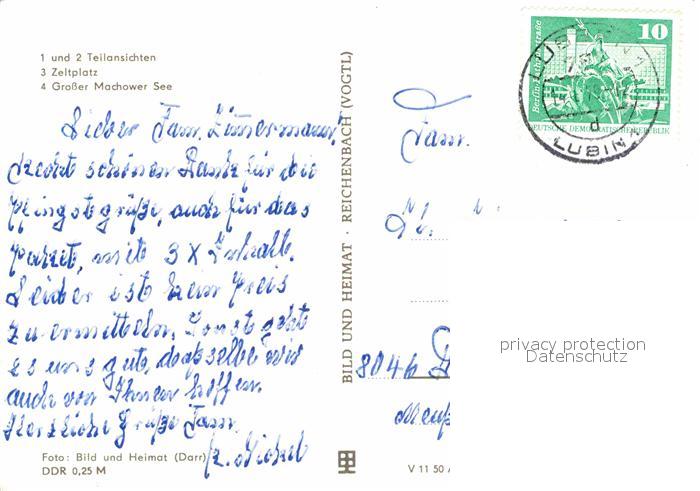 1 und 2 Teilansichten
3 Zeltplatz
4 Großer Machower See
Lieber Fam. Zimermann,
Recht schönen Dank für die
Pfingstgrüße, auch für das
Paket, mit 3 X Inhalt.
Leider ist kein Preis
zu ermitteln. Sonst geht
es uns gut, dasselbe wir
auch von Ihnen hoffen.
Herzliche Grüße Fam.
Foto: Bild und Heimat (Darr)
DDR 0,25 M
BILD UND HEIMAT · REICHENBACH (VOGTL)
V 11 50
10
Berlin, Rathausstraße
DEUTSCHE DEMOKRATISCHE REPUBLIK
LUBIN
d
Fam.
8046
privacy protection
Datenschutz